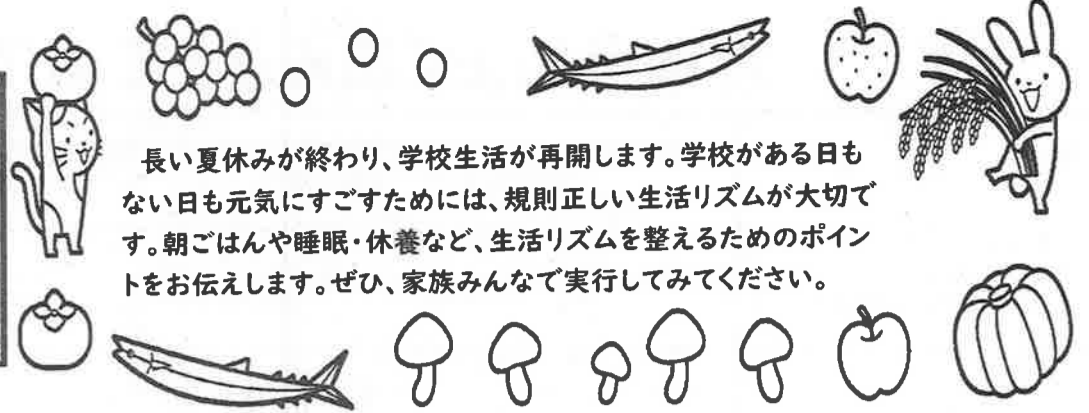 長い夏休みが終わり、学校生活が再開します。学校がある日も
ない日も元気にすごすためには、規則正しい生活リズムが大切で
す。朝ごはんや睡眠・休養など、生活リズムを整えるためのポイン
トをお伝えします。ぜひ、家族みんなで実行してみてください。